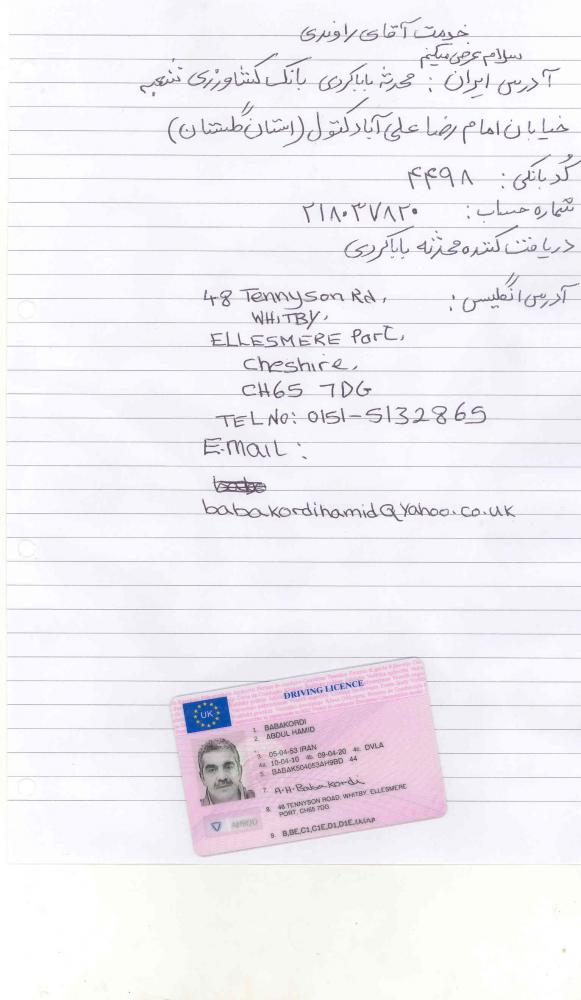 خدمت آقای راوندی
سلام عرض میکنم
آدرس ایران : محدثه باباکردی بانک کشاورزی شعبه
خیابان امام رضا علی آباد کتول (استان گلستان)
کد بانکی : ۴۴۹۸
شماره حساب : ۲۱۸۰۳۷۸۲۰
دریافت کننده محدثه باباکردی
آدرس انگلیس :
48 Tennyson Rd,
WHITBY,
ELLESMERE Port,
Cheshire,
CH65 7DG
TEL No: 0151-5132865
E.MAIL :
babakordihamid@yahoo.co.uk
DRIVING LICENCE
UK
1. BABAKORDI
2. ABDUL HAMID
3. 05-04-53 IRAN
4a. 10-04-10 4b. 09-04-20 4c. DVLA
5. BABAK504053AH9BD 44
7. A-H-Babakordi
8. 48 TENNYSON ROAD, WHITBY, ELLESMERE
PORT, CH65 7DG
9. B,BE,C1,C1E,D1,D1E,f,k,l,n,p